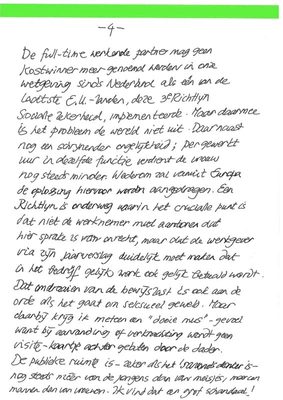 -4-
De full-time werkende partner mag geen
kostwinner meer genoemd worden in onze
wetgeving sinds Nederland als één van de
laatste E.U.-landen, deze 3e Richtlijn
Sociale Zekerheid, implementeerde. Maar daarmee
is het probleem de wereld niet uit. Daarnaast
nog een schrijnender ongelijkheid; per gewerkt
uur in dezelfde functie verdient de vrouw
nog steeds minder. Wederom zal vanuit Europa
de oplossing hiervoor worden aangedragen. Een
Richtlijn is onderweg waarin het cruciale punt is
dat niet de werknemer moet aantonen dat
hier sprake is van onrecht, maar dat de werkgever
via zijn jaarverslag duidelijk moet maken dat
in het bedrijf gelijk werk ook gelijk betaald wordt.
Dat omdraaien van de bewijslast is ook aan de
orde als het gaat om seksueel geweld. Maar
daarbij krijg ik meteen een "dooie mus"-gevoel
want bij aanranding of verkrachting wordt geen
visite-kaartje achter gelaten door de dader.
De publieke ruimte is - zeker als het 's avonds donker is -
nog steeds méér van de jongens dan van meisjes, meer van
mannen dan van vrouwen. Ik vind dat een grof schandaal!